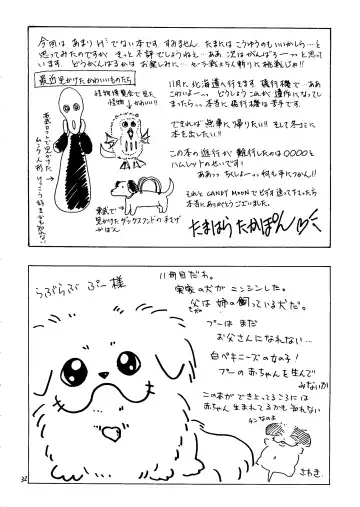 今回は あまり Hでない本です すみません たまには こうゆうのもいいかしら…と
思ってみたのですが きっと不評でしょうねぇ…ああ 次は がんばろう…っと 思って
います どうがんばるかは お楽しみに…
最近見かけたかわいいものたち
11月に 北海道へ行きます 飛行機で…ああ
こわいよー。 どうしよう これが 遺作になって
しまったら。。本当に 飛行機は 苦手です。
できれば 無事に 帰りたい!! そして 冬コミに
本を出したい!!
この本の進行が 難行したのは ○○○○と
ハムレットのせいです!
ああっっ ちくしょー。。何も手につかん!!
それと CANDY MOONでビデオ送って下さった方
本当にありがとうございました。
怪物博覧会で見た
怪物 かわいい!!
東武で
見かけた ダックスフンドの 手さげ
かばん
たまはら たかぽん
うぶらぶ ぷー 様
11冊目だわ。
実家の犬が ニンシンした。
父は 姉の 飼っている犬だ。
プーは まだ
お父さんに なれない…
白ペキニーズの女の子!
プーの赤ちゃんを 生んで
みないか
この本ができとってるころには
赤ちゃん 生まれてるかも 知れない
チンなのよ
さわき
32